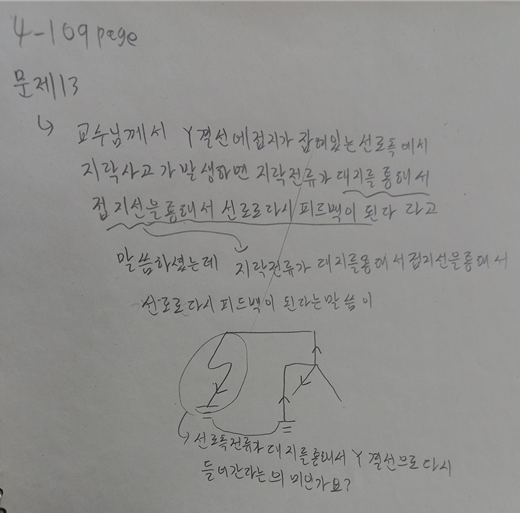 4-109page
문제13
↳ 교수님께서 Y결선에접지가 잡혀있는선로측에서
지락사고가발생하면 지락전류가 대지를 통해서
접지선을통해서 선로로다시피드백이 된다 라고
말씀하셨는데 지락전류가 대지를통해서접지선을통해서
선로로다시 피드백이 된다는말씀이
선로측전류가 대지를통해서 Y 결선으로다시
들어간다는 의미인가요?